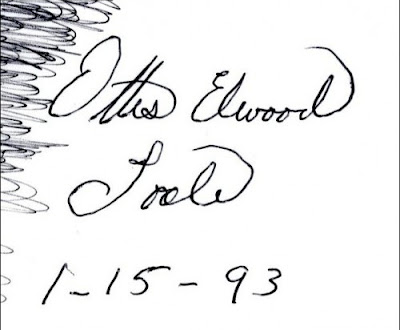 Ottis Elwood
Toole
1-15-93